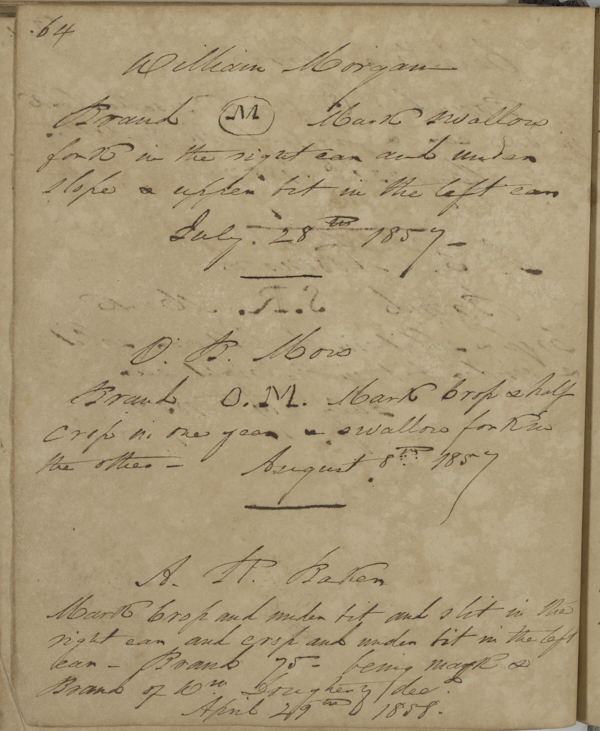 64
William Morgan
Brand M Mark swallow
fork in the right ear and under
slope & upper bit in the left ear
July 28th 1857
O. B. Mow
Brand O.M. Mark Crop & half
crop in one year & swallow fork in
the other - August 8th 1857
A. H. Baker
Mark Crop and under bit and slit in the
right ear and crop and under bit in the left
ear - Brand 75 - being mark &
Brand of Wm Dougherty dec.
April 29th 1858.